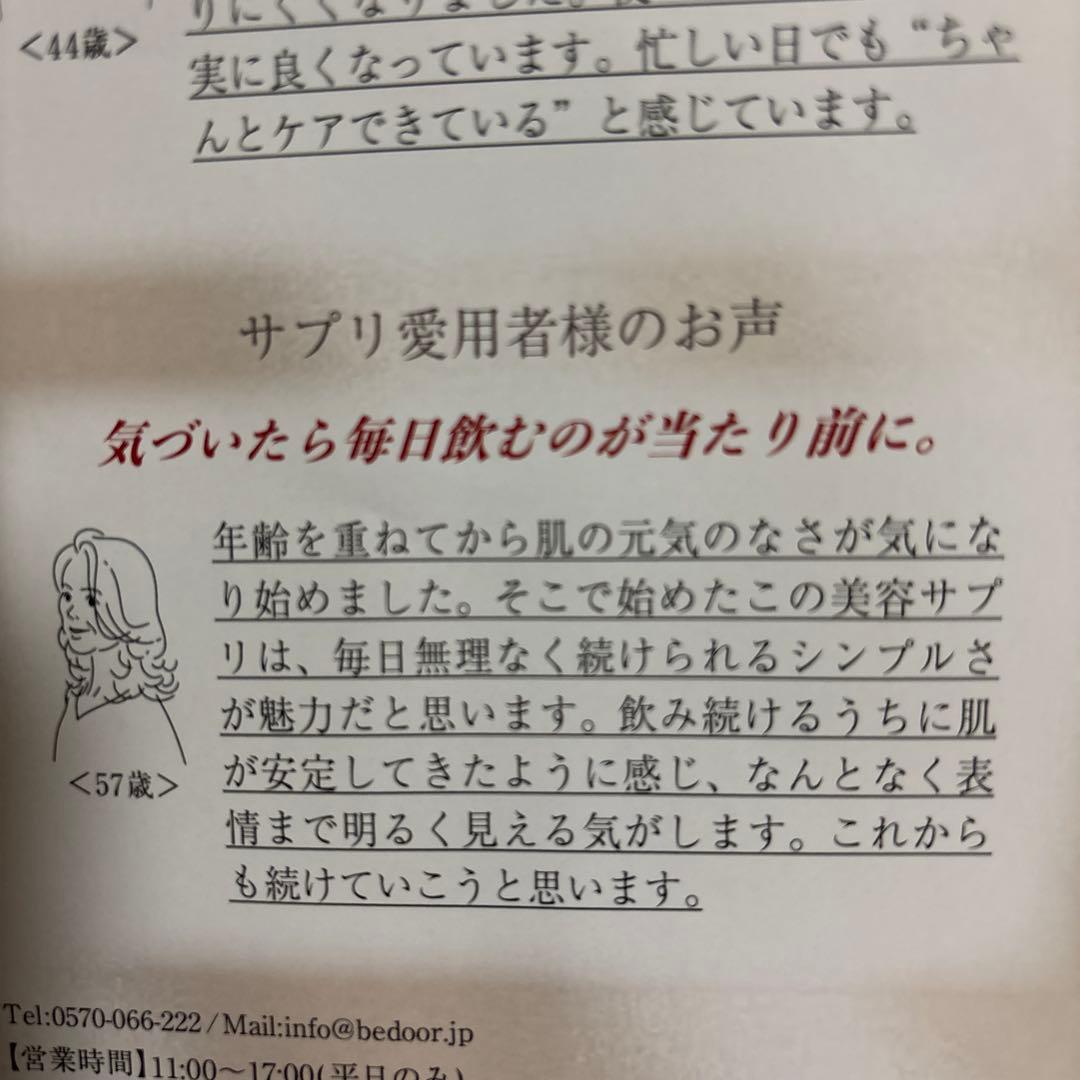 りにくくなりました。
<44歳>
実に良くなっています。忙しい日でも“ちゃ
んとケアできている”と感じています。
サプリ愛用者様のお声
気づいたら毎日飲むのが当たり前に。
年齢を重ねてから肌の元気のなさが気にな
り始めました。そこで始めたこの美容サプ
リは、毎日無理なく続けられるシンプルさ
が魅力だと思います。飲み続けるうちに肌
が安定してきたように感じ、なんとなく表
情まで明るく見える気がします。これから
も続けていこうと思います。
<57歳>
Tel:0570-066-222/Mail:info@bedoor.jp
【営業時間】11:00〜17:00(平日のみ)